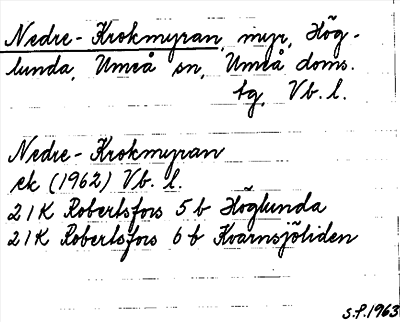 Nedre-Krokmyran, myr, Hög-
lunda, Umeå sn, Umeå doms.
tg, Vb. l.
Nedre-Krokmyran
ek (1962) Vb. l.
21K Robertsfors 5 b Höglunda
21K Robertsfors 6 b Kvarnsjöliden
S.P. 1963